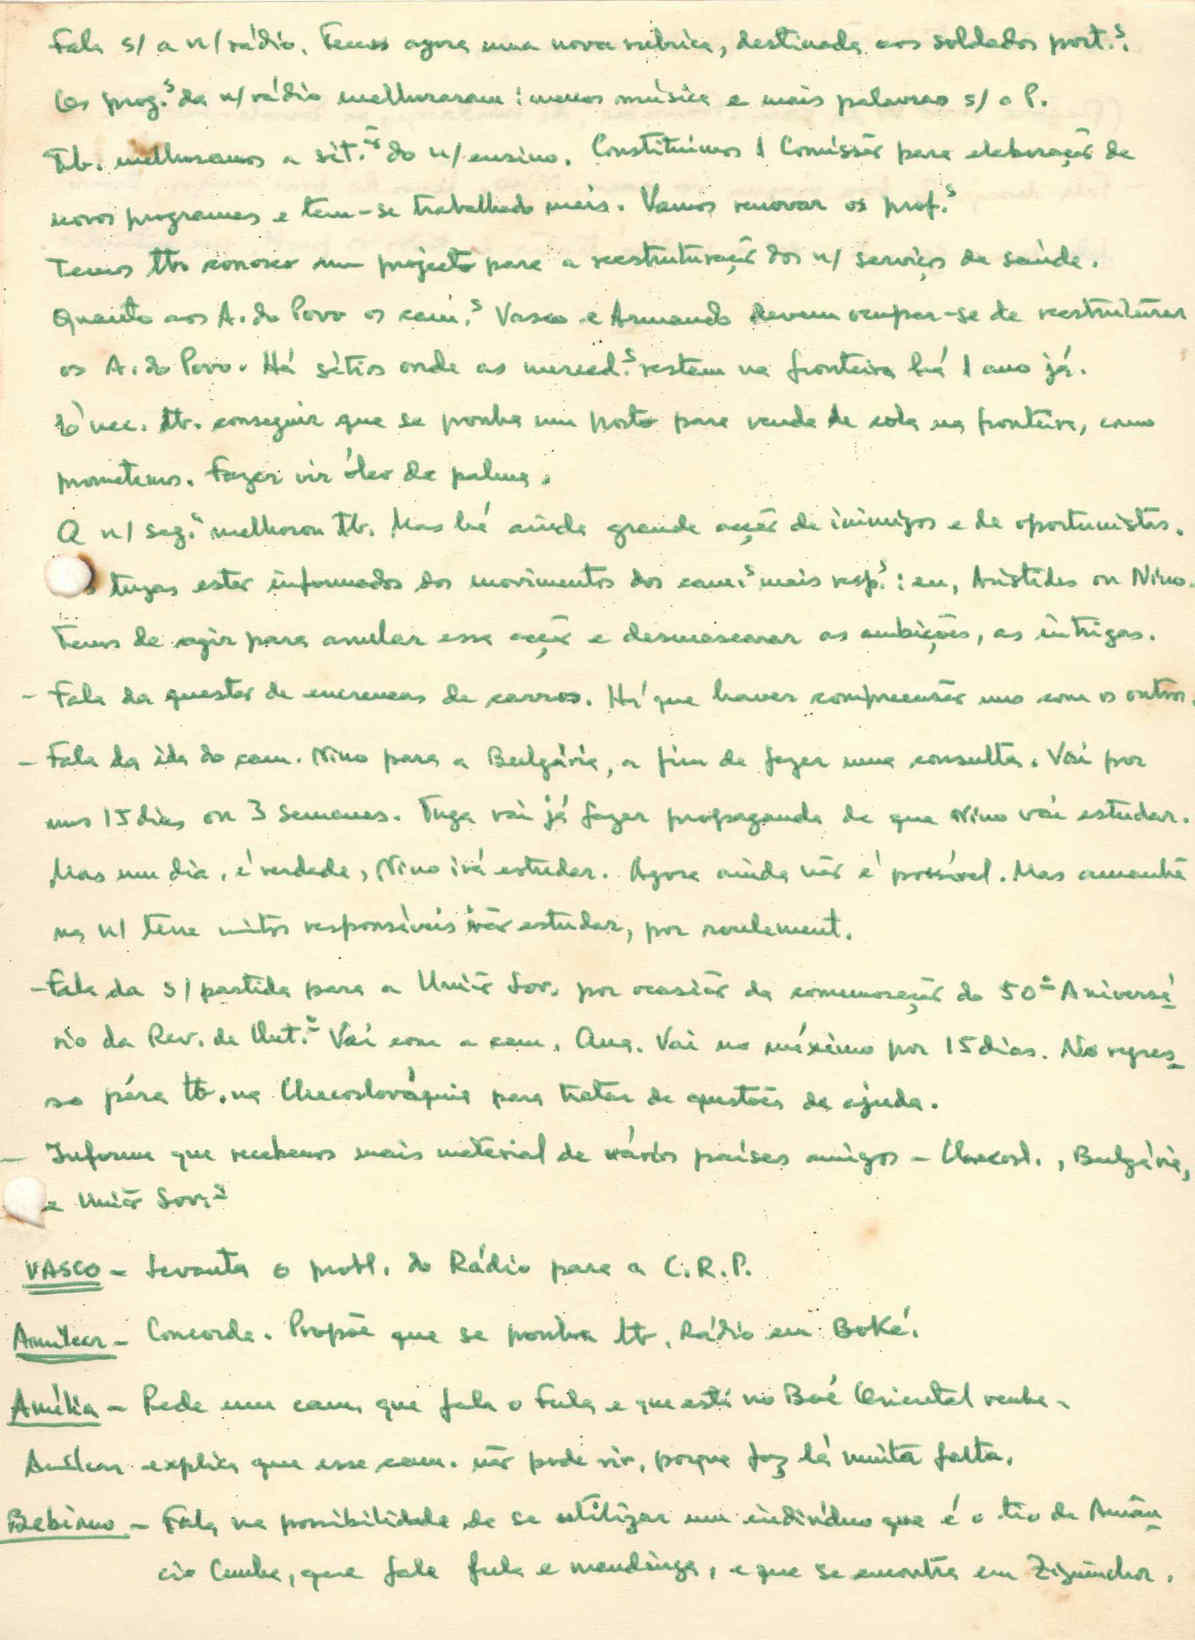 Fala s/ a n/ rádio. Temos agora uma nova rubrica, destinada aos soldados port.s.
Os prog.s da n/ rádio melhoraram: menos música e mais palavras s/ o P.
Tb. melhoramos a sit. do n/ ensino. Constituimos 1 Comissão para elaboração de
novos programas e tem-se trabalhado mais. Vamos renovar os prof.s
Temos tb. conosco um projecto para a reestruturação dos n/ serviços de saúde.
Quanto aos A. do Povo os cam.s Vasco e Armando devem ocupar-se de reestruturar
os A. do Povo. Há sítios onde as mercad.s restem na fronteira há 1 ano já.
É nec. tb. conseguir que se ponha um posto para venda de cola na fronteira, como
prometemos. Fazer vir óleo de palma.
A n/ seg.a melhorou tb. Mas há ainda grande acção de inimigos e de oportunistas.
tugas estar informados dos movimentos dos cam.s mais resp.s: eu, Aristides ou Nino.
Temos de agir para anular essa acção e desmascarar as ambições, as intrigas.
- Fala da questão de encrencas de carros. Há que haver compreensão uns com os outros.
- Fala da ida do cam. Nino para a Bulgária, a fim de fazer uma consulta. Vai por
uns 15 dias ou 3 semanas. Tuga vai já fazer propaganda de que Nino vai estudar.
Mas um dia, é verdade, Nino irá estudar. Agora ainda não é possível. Mas amanhã
na n/ terra muitos responsáveis irão estudar, por roulement.
- Fala da s/ partida para a União Sov. por ocasião da comemoração do 50º Aniversá-
rio da Rev. de Out.o Vai com a cam. Ana. Vai no máximo por 15 dias. No regres-
so pára tb. na Checoslováquia para tratar de questões de ajuda.
- Informa que recebemos mais material de vários países amigos - Checosl., Bulgária,
e União Sov.a
VASCO - Levanta o probl. do Rádio para a C.R.P.
Amílcar - Concorda. Propõe que se ponha tb. Rádio em Boké.
Amélia - Pede um cam. que fala o Fula e que está no Boé Oriental venha.
Amílcar explica que esse cam. não pode vir, porque faz lá muita falta.
Bebiano - Fala na possibilidade de se utilizar um indivíduo que é o tio de Amân-
cio Cunha, que fala fula e mandinga, e que se encontra em Ziguinchor.